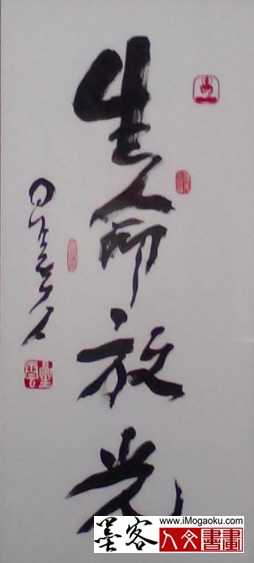 生命放光
墨客
www.iMogaoku.com
人文書畫